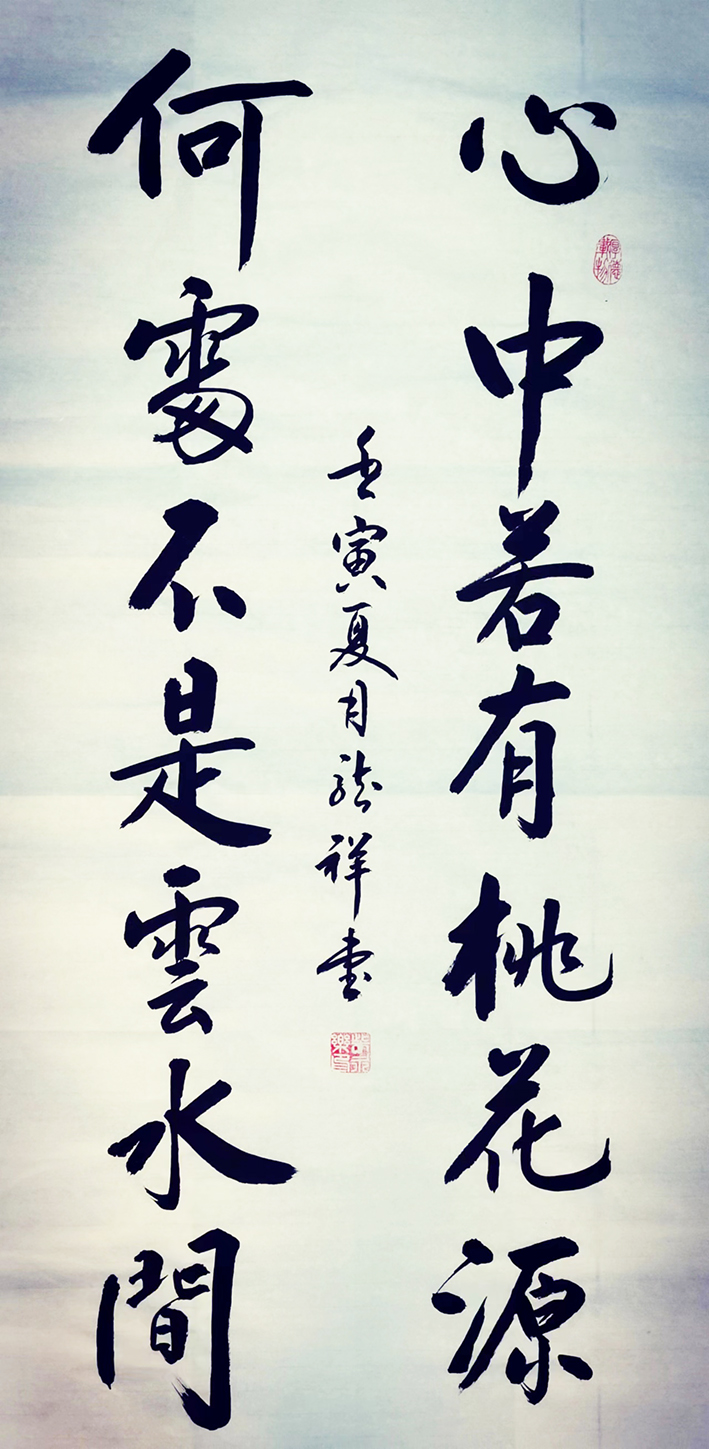 心中若有桃花源
何處不是雲水間
壬寅夏月龍祥書
厚德載物